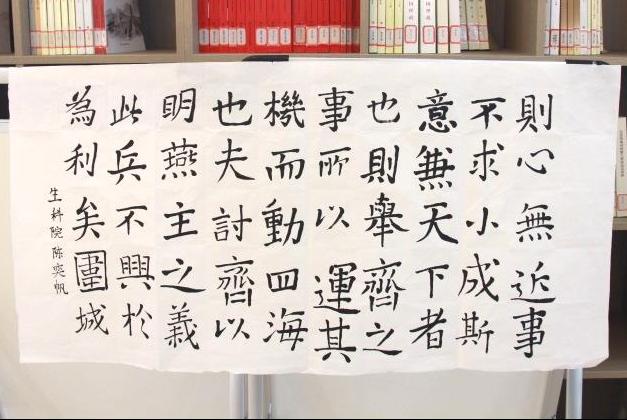 則心無近事
不求小成斯
意兼天下者
也則舉齊之
事所以運其
機而動四海
也夫討齊以
明燕主之義
此兵不興於
為利矣圍城
生科院 陈奕帆